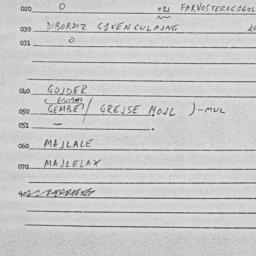 020 0 021 FARVOSTEROCSGOL
030 DIBORDIZ GIVENCULAING
031 0
040 GOJDER
050 GEMBET / GREJSE MOJL )-MUL
051 -
060 MAJLALE
070 MAJLELAX